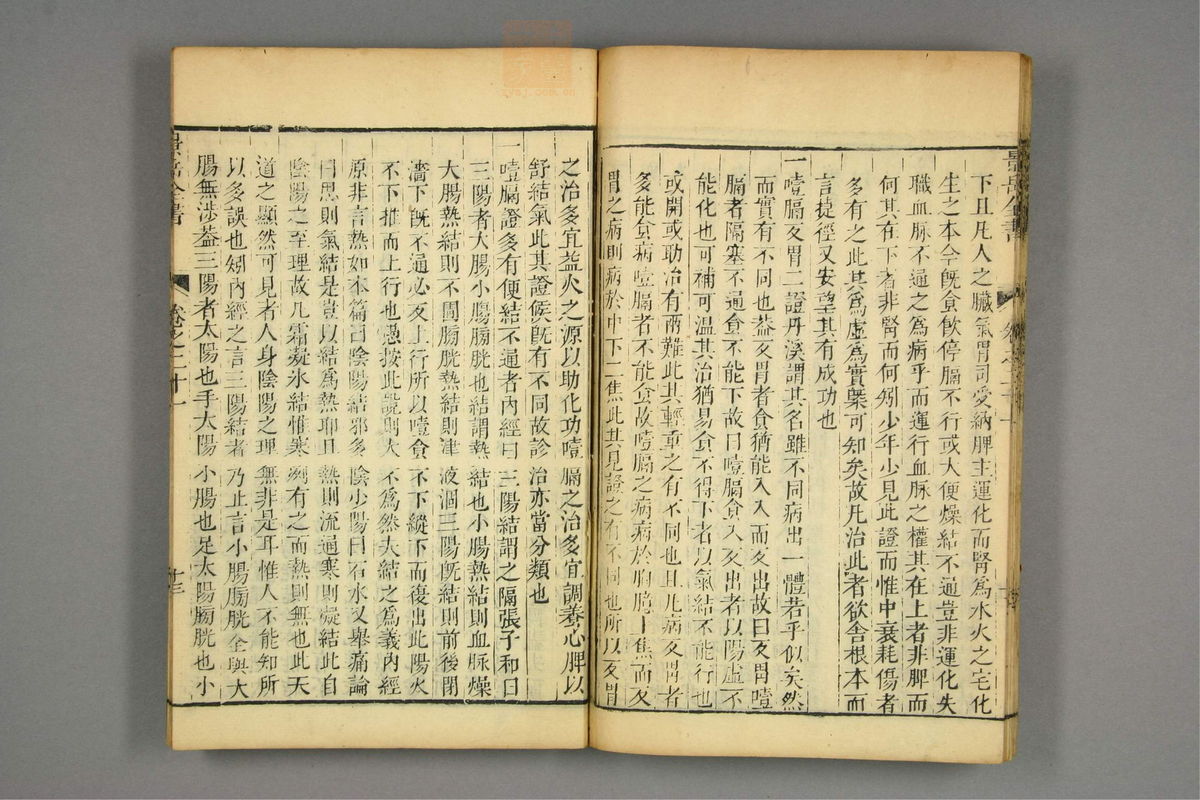 下且凡人之臟氣胃司受納脾主運化而腎爲水火之宅化
生之本今旣食飲停膈不行或大便燥結不通豈非運化失
職血脉不通之爲病乎而運行血脉之權其在上者非脾而
何其在下者非腎而何矧少年少見此證而惟中衰耗傷者
多有之此其爲虛爲實槩可知矣故凡治此者欲舍根本而
言捷徑又安望其有成功也
一噎膈反胃二證丹溪謂其名雖不同病出一體若乎似矣然
而實有不同也葢反胃者食猶能入入而反出故曰反胃噎
膈者隔塞不通食不能下故曰噎膈食入反出者以陽虛不
能化也可補可温其治猶易食不得下者以氣結不能行也
或開或助冶有兩難此其輕重之有不同也且凡病反胃者
多能食病噎膈者不能食故噎膈之病病於胸臆上焦而反
胃之病則病於中下二焦此其見證之有不同也所以反胃
之治多宜益火之源以助化功噎膈之治多宜調養心脾以
舒結氣此其證候旣有不同故診治亦當分類也
一噎膈證多有便結不通者內經曰三陽結謂之隔張子和曰
三陽者大腸小腸膀胱也結謂熱結也小腸熱結則血脉燥
大腸熱結則不圊膀胱熱結則津液涸三陽旣結則前後閉
濇下旣不通必反上行所以噎食不下縱下而復出此陽火
不下推而上行也愚按此說則大不爲然夫結之爲義內經
原非言熱如本篇曰陰陽結邪多陰少陽曰石水又舉痛論
曰思則氣結是豈以結爲熱耶且熱則流通寒則凝結此自
陰陽之至理故凡霜凝氷結惟寒冽有之而熱則無也此天
道之顯然可見者人身陰陽之理無非是耳惟人不能知所
以多誤也矧內經之言三陽結者乃止言小腸膀胱全與大
腸無涉葢三陽者太陽也手太陽小腸也足太陽膀胱也小
景岳全書
卷之二十一
十三